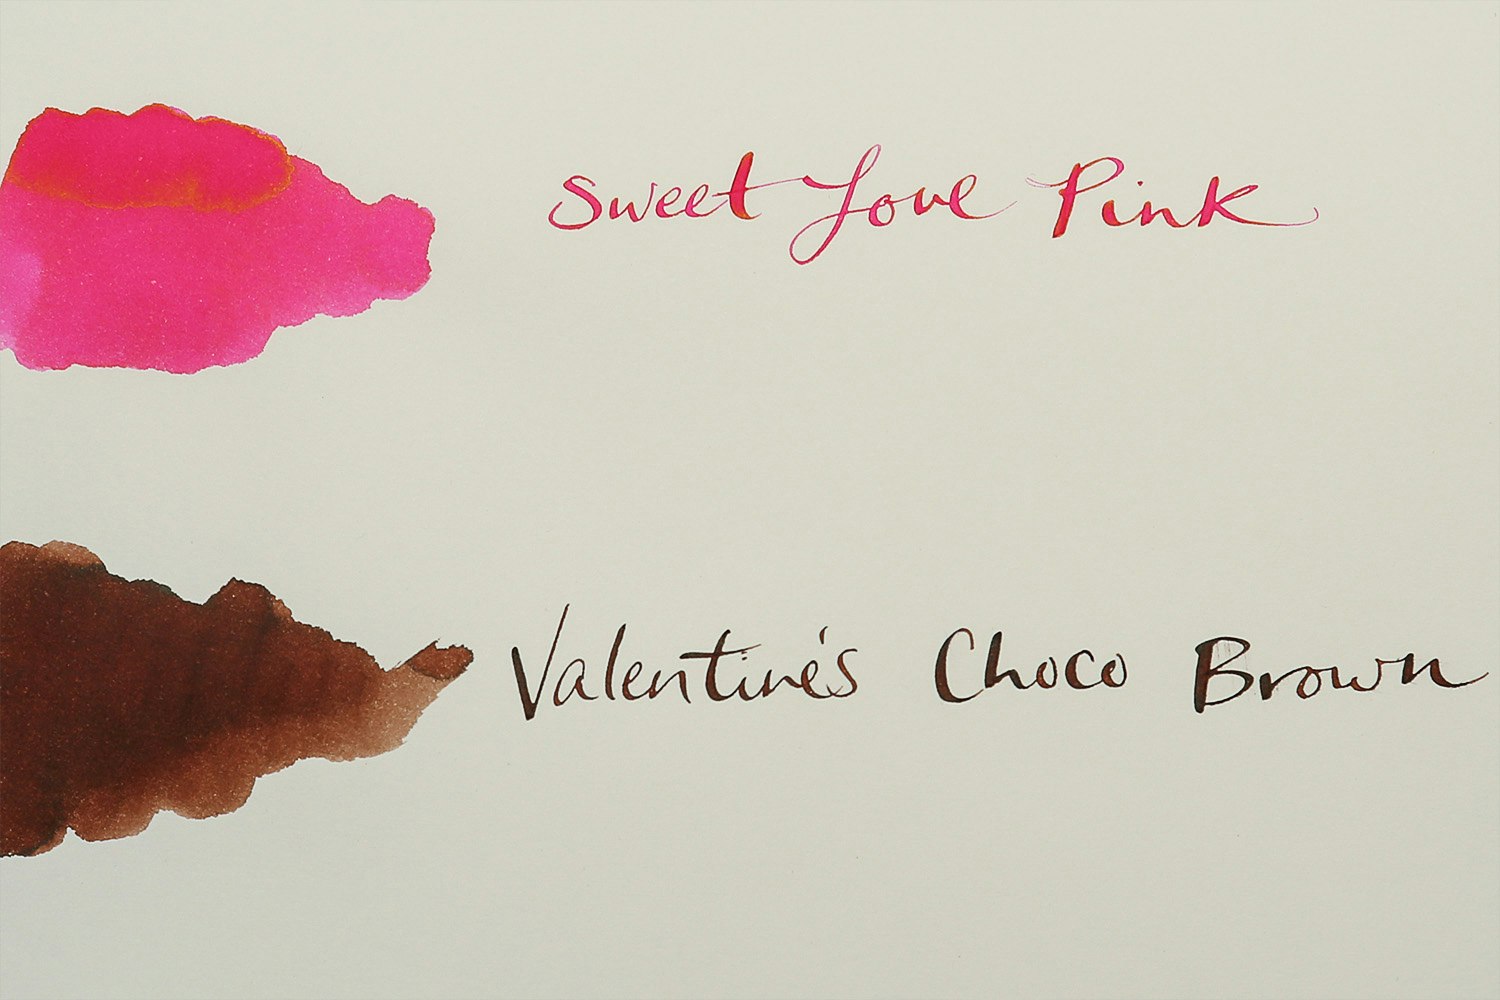 Sweet Love Pink
Valentine's Choco Brown